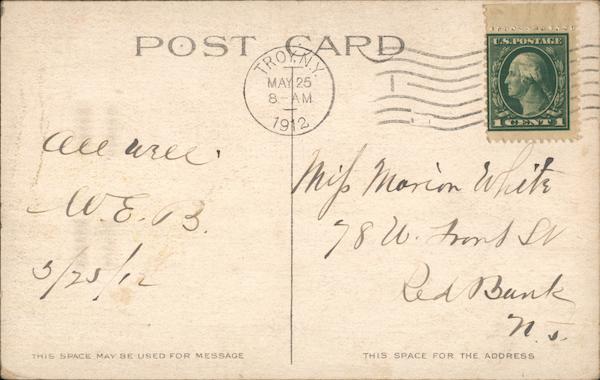 POST CARD
TROY, N.Y.
MAY 25
8-AM
1912
U.S. POSTAGE
1 CENT 1
All well.
W. E. B.
5/25/12
Miss Marion White
78 W. Front St
Red Bank
N. J.
THIS SPACE MAY BE USED FOR MESSAGE
THIS SPACE FOR THE ADDRESS